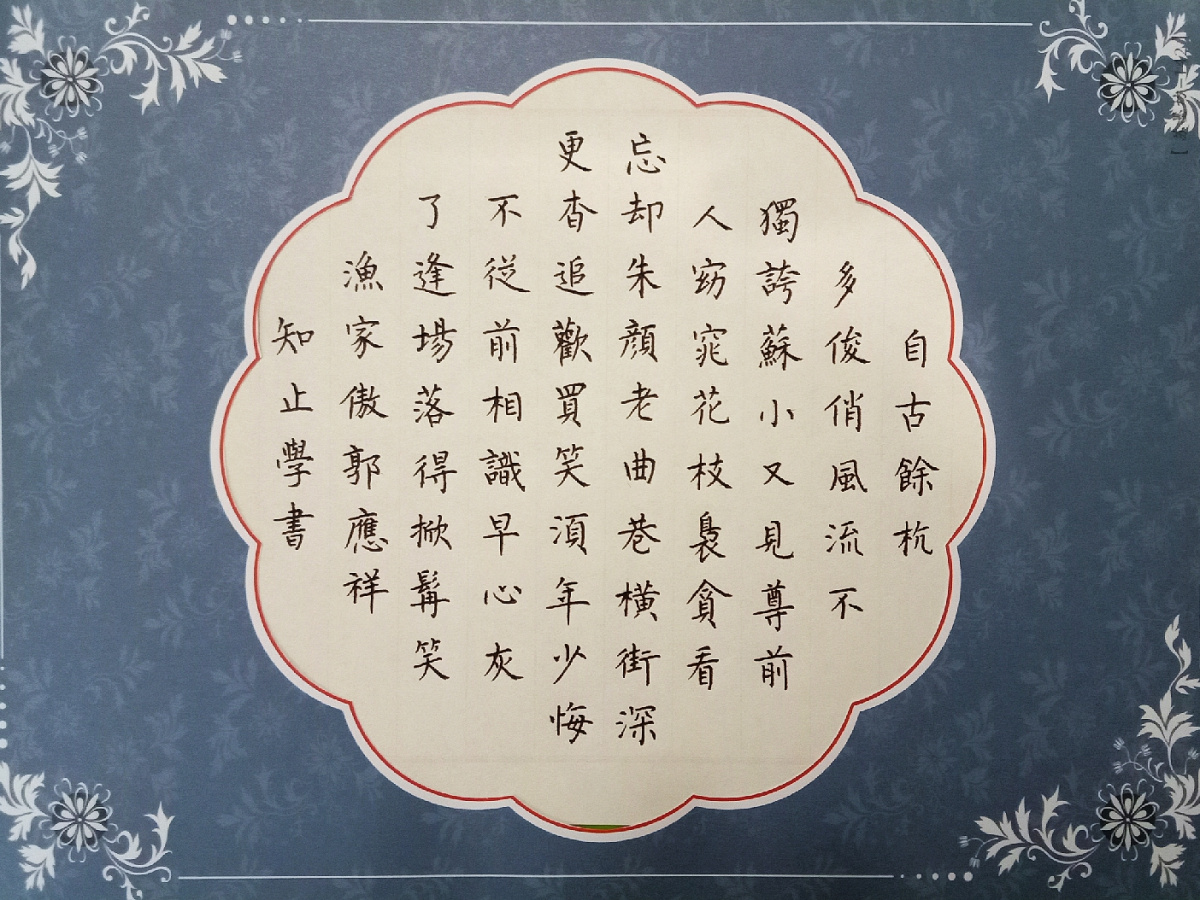 自古餘杭
多俊俏風流不
獨誇蘇小又見尊前
人窈窕花枝裊貪看
忘却朱顏老曲巷橫街深
更杳追歡買笑須年少悔
不從前相識早心灰
了逢場落得掀髯笑
漁家傲郭應祥
知止學書